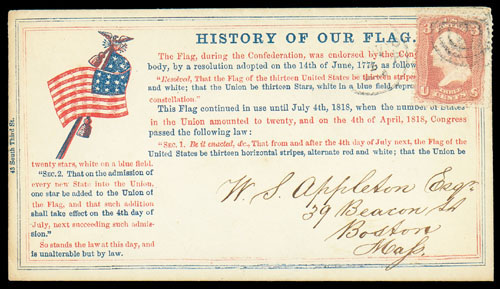 HISTORY OF OUR FLAG.
The Flag, during the Confederation, was endorsed by the Cong
body, by a resolution adopted on the 14th of June, 1777, as follow
"Resolved, That the Flag of the thirteen United States be thirteen stripes
and white; that the Union be thirteen Stars, white in a blue field, repre
constellation."
This Flag continued in use until July 4th, 1818, when the number of States
in the Union amounted to twenty, and on the 4th of April, 1818, Congress
passed the following law:
"SEC. 1. Be it enacted, &c., That from and after the 4th day of July next, the Flag of the
United States be thirteen horizontal stripes, alternate red and white; that the Union be
twenty stars, white on a blue field.
"SEC. 2. That on the admission of
every new State into the Union,
one star be added to the Union of
the Flag, and that such addition
shall take effect on the 4th day of
July, next succeeding such admis-
sion."
So stands the law at this day, and
is unalterable but by law.
45 South Third St.
3 3
U S
W. S. Appleton Esqr.
39 Beacon St
Boston
Mass.